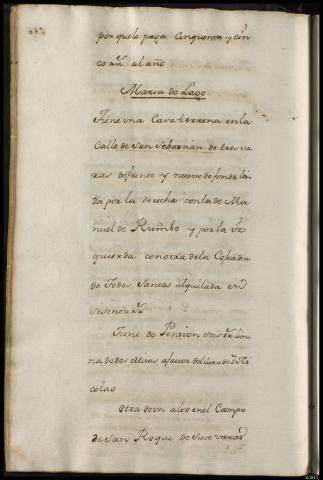 por quele paga Cinquenta y cin
co rr.s al año
Maria de Lago
Tiene una Casa terrena en la
Calle de San Sebastian de tres va
ras de frente y nueve de fondo lin
da por la derecha con la de Ma
nuel de Rumbo y por la Yz
quierda con otra dela Cofradia
de Todos Santos alquilada en
Sesenta rr.s
Tiene de Pension seis rr.s
na de dos Misas a favor del Cura de S.n Ni
colas
Otra de un alto en el Campo
de San Roque de siete varas